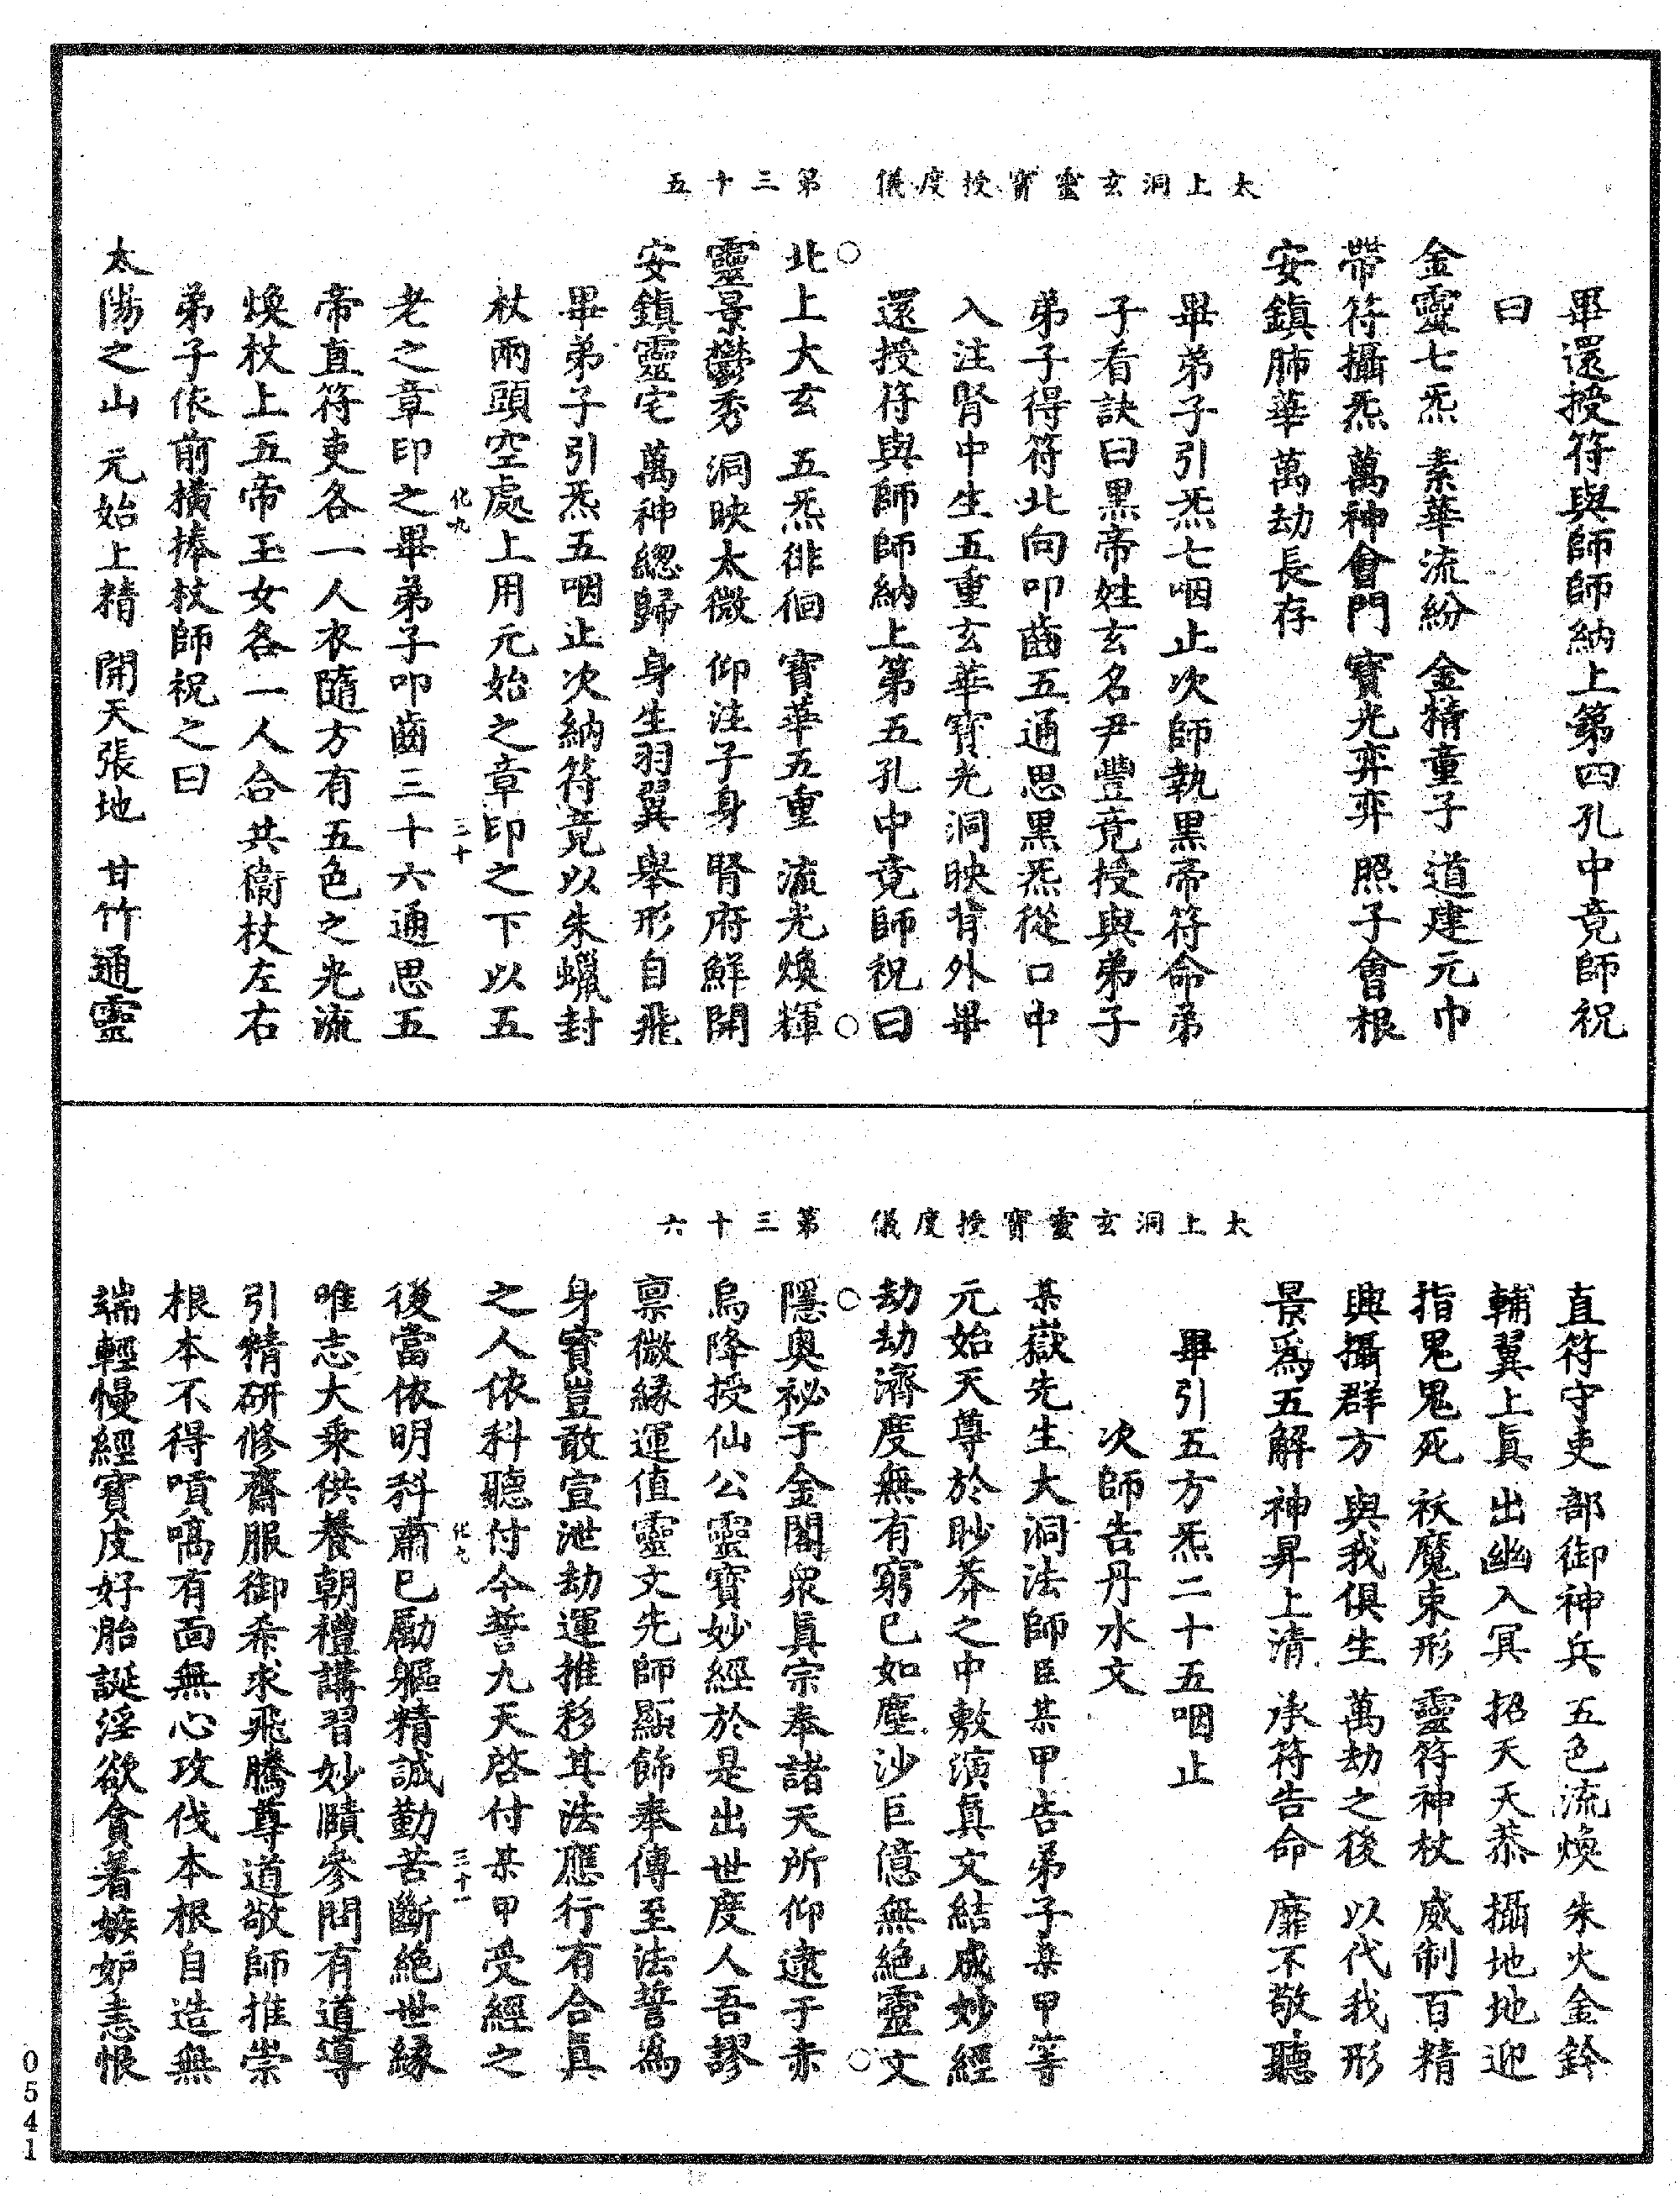 太上洞玄靈寳授度儀　第三十五
畢還授符與師師納上第四孔中竟師祝
曰
金靈七炁　素華流紛　金精童子　道建元巾
帶符攝炁　萬神會門　寳光弈弈　照子會根
安鎮肺華　萬劫長存
畢弟子引炁七咽止次師執黑帝符命弟
子看訣曰黑帝姓玄名尹豐竟授與弟子
弟子得符北向叩齒五通思黑炁從口中
入注腎中生五重玄華寳光洞映背外畢
還授符與師師納上第五孔中竟師祝曰
北上大玄　五炁徘徊　寳華五重　流光煥輝
靈景鬱秀　洞映太微　仰注子身　腎府鮮開
安鎮靈宅　萬神緫歸　身生羽翼　舉形自飛
畢弟子引炁五咽止次納符竟以朱蠟封
杖兩頭空處上用元始之章印之下以五
化九　三十
老之章印之畢弟子叩齒三十六通思五
帝直符吏各一人衣隨方有五色之光流
煥杖上五帝玉女各一人合共衞杖左右
弟子依前橫捧杖師祝之曰
太陽之山　元始上精　開天張地　甘竹通靈
太上洞玄靈寳授度儀　第三十六
直符守吏　部御神兵　五色流煥　朱火金鈴
輔翼上真　出幽入冥　招天天恭　攝地地迎
指鬼鬼死　袄魔束形　靈符神杖　威制百精
興攝群方　與我俱生　萬劫之後　以代我形
景為五解　神昇上清　承符告命　靡不敬聽
畢引五方炁二十五咽止
次師告丹水文
某嶽先生大洞法師臣某甲告弟子某甲等
元始天尊於眇莽之中敷演真文結成妙經
劫劫濟度無有窮已如塵沙巨億無絕靈文
隱奥祕于金閣衆真宗奉諸天所仰逮于赤
烏降授仙公靈寳妙經於是出世度人吾謬
禀微緣運值靈文先師顯飾奉傳至法誓為
身寳豈敢宣泄劫運推移其法應行有合真
之人依科聽付今誓九天啓付某甲受經之
化九　三十一
後當依明科肅已勵軀精誠勤苦斷絕世緣
唯志大乘供養朝禮講習妙賾參問有道導
引精研修齋服御希求飛騰尊道敬師推崇
根本不得嘖啺有面無心攻伐本根自造無
端輕慢經寳皮好胎誕淫欲貪著嫉妬恚恨
0541